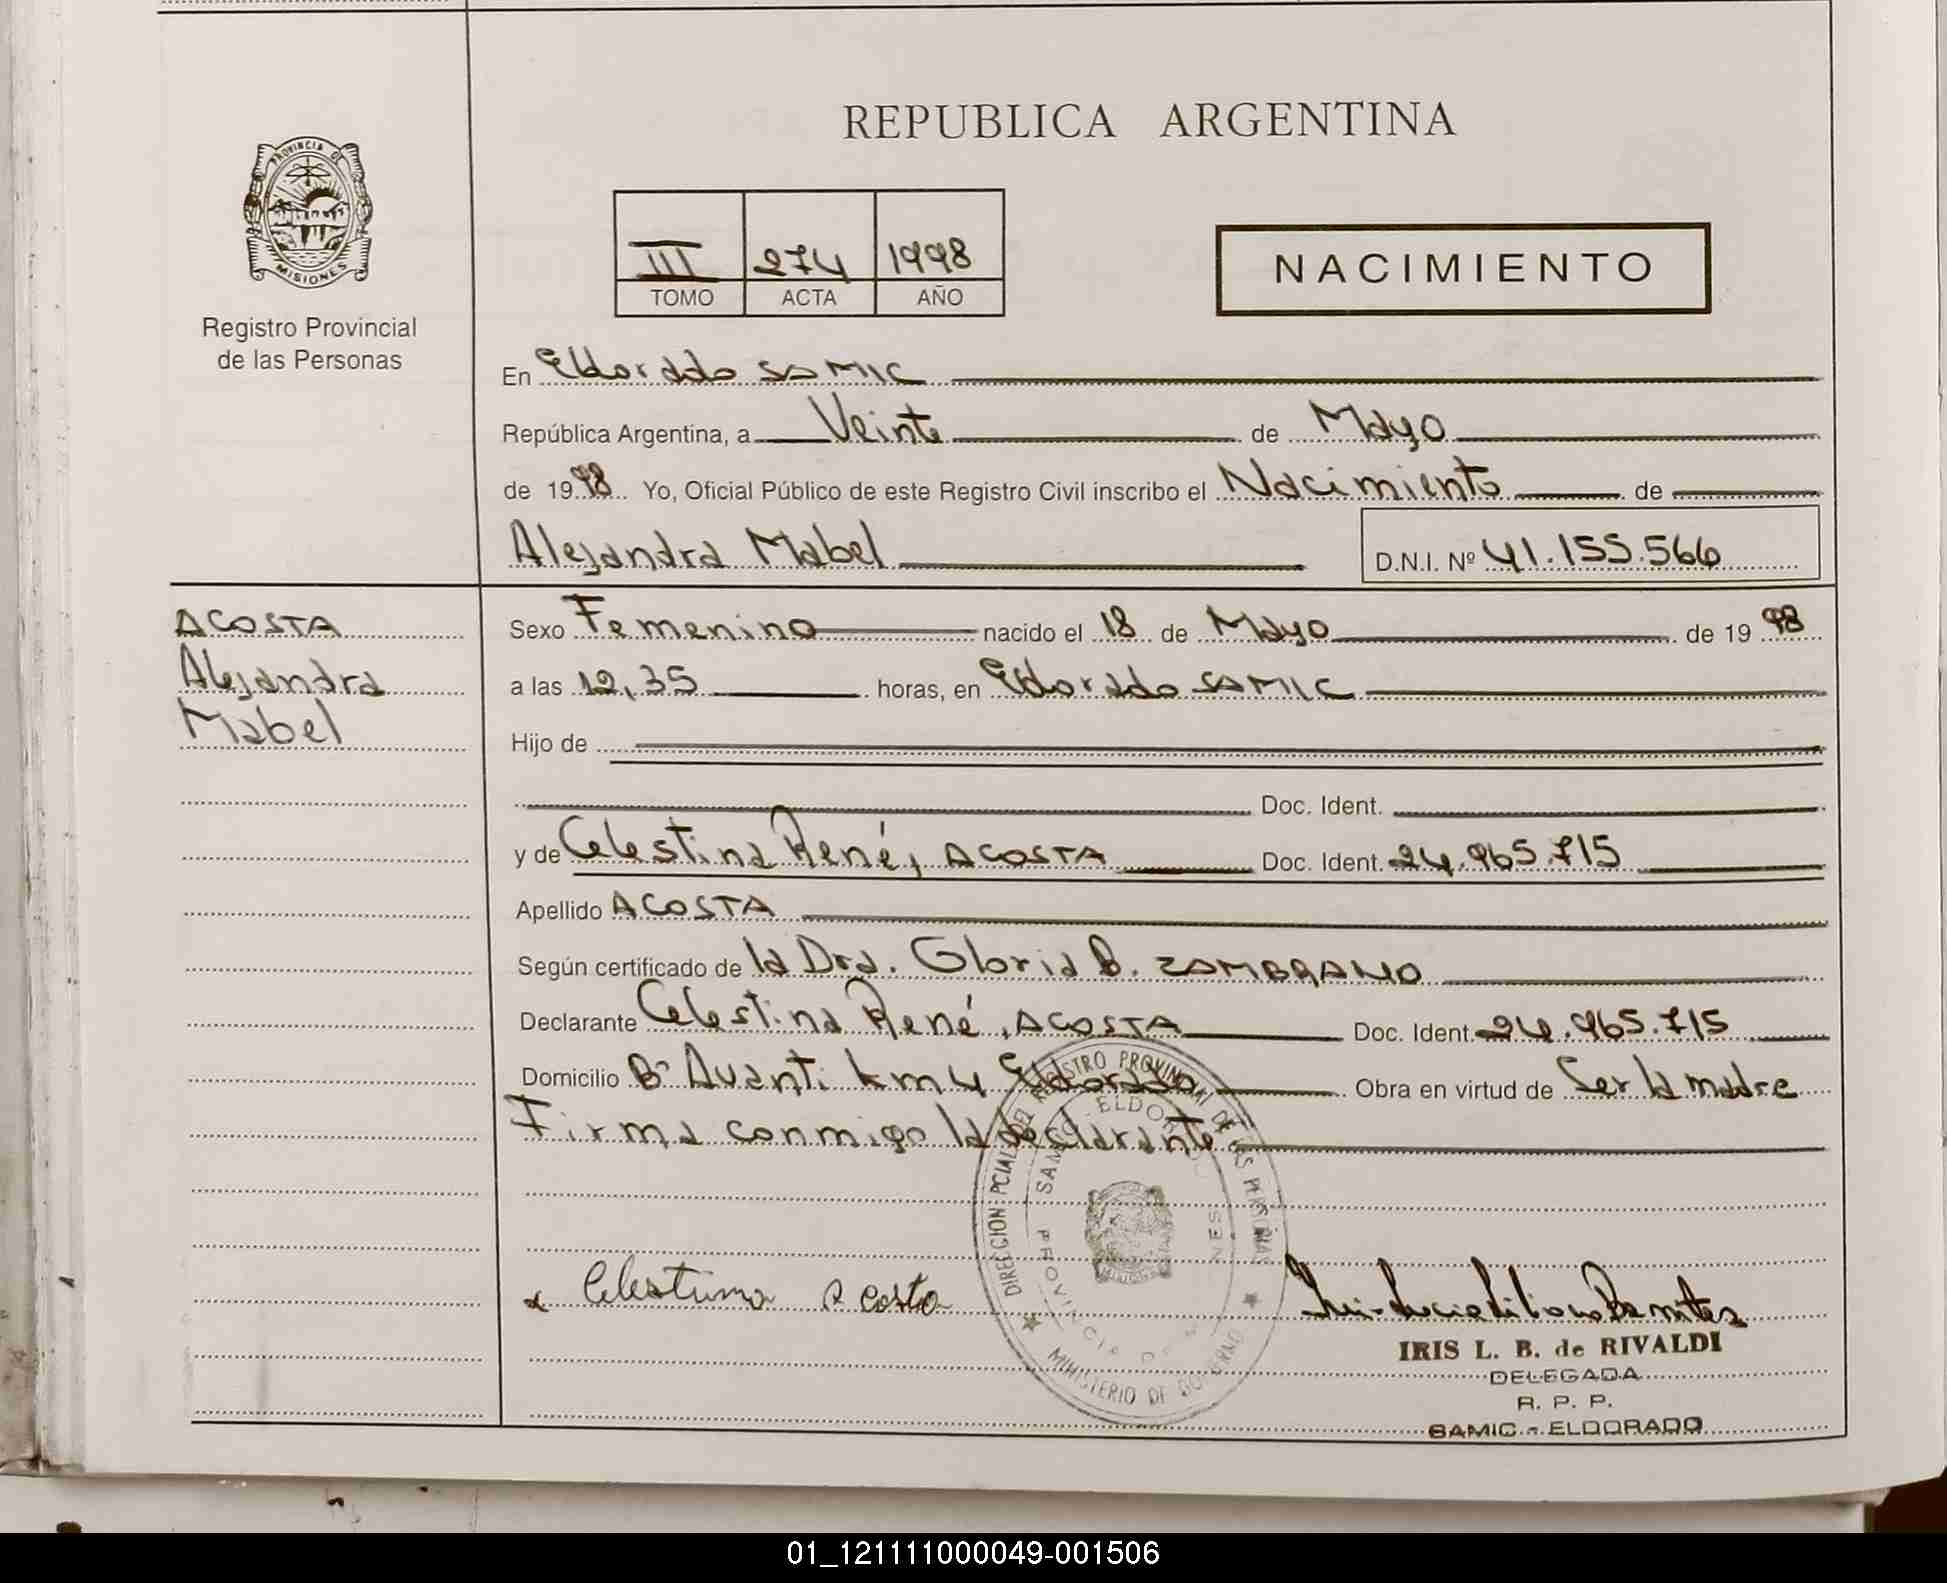 PROVINCIA DE
MISIONES
Registro Provincial
de las Personas
REPUBLICA ARGENTINA
III 274 1998
TOMO ACTA AÑO
NACIMIENTO
En Eldorado SAMIC
República Argentina, a Veinte de Mayo
de 1998 Yo, Oficial Público de este Registro Civil inscribo el Nacimiento de
Alejandra Mabel D.N.I. Nº 41.155.566
ACOSTA
Alejandra
Mabel
Sexo Femenino nacido el 18 de Mayo de 1998
a las 12,35 horas, en Eldorado SAMIC
Hijo de
Doc. Ident.
y de Celestina René, ACOSTA Doc. Ident. 24.965.715
Apellido ACOSTA
Según certificado de la Dra. Gloria B. ZAMBRANO
Declarante Celestina René, ACOSTA Doc. Ident. 24.965.715
Domicilio Bº Avanti km 4 Eldorado Obra en virtud de Ser la madre
Firma conmigo la declarante
DIRECCION PCIAL DEL REGISTRO PROVINCIAL DE LAS PERSONAS
SAMIC ELDORADO
PROVINCIA DE MISIONES
MINISTERIO DE GOBIERNO
x Celestina Acosta
IRIS L. B. de RIVALDI
DELEGADA
R. P. P.
SAMIC - ELDORADO
01_121111000049-001506